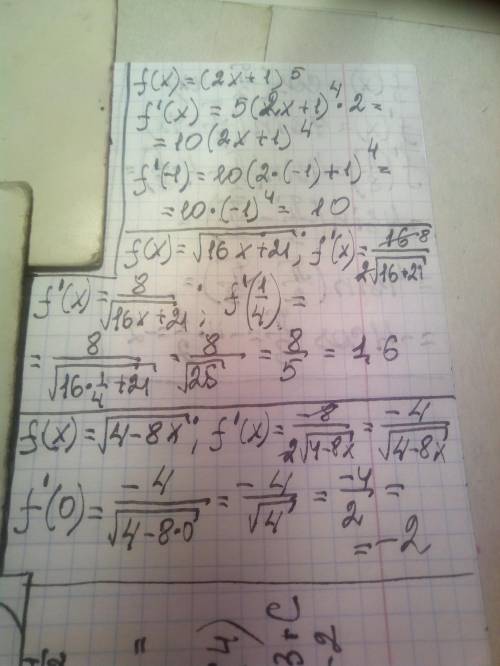 f(x) = (2x+1)^5
f'(x) = 5(2x+1)^4 · 2 =
= 10(2x+1)^4
f'(-1) = 10(2·(-1)+1)^4 =
= 10·(-1)^4 = 10
f(x) = √(16x+21); f'(x) = 16 8 / 2√(16+21)
f'(x) = 8/√(16x+21); f'(1/4) =
= 8/√(16·1/4+21) = 8/√25 = 8/5 = 1,6
f(x) = √(4-8x); f'(x) = -8/2√(4-8x) = -4/√(4-8x)
f'(0) = -4/√(4-8·0) = -4/√4 = -4/2 =
= -2